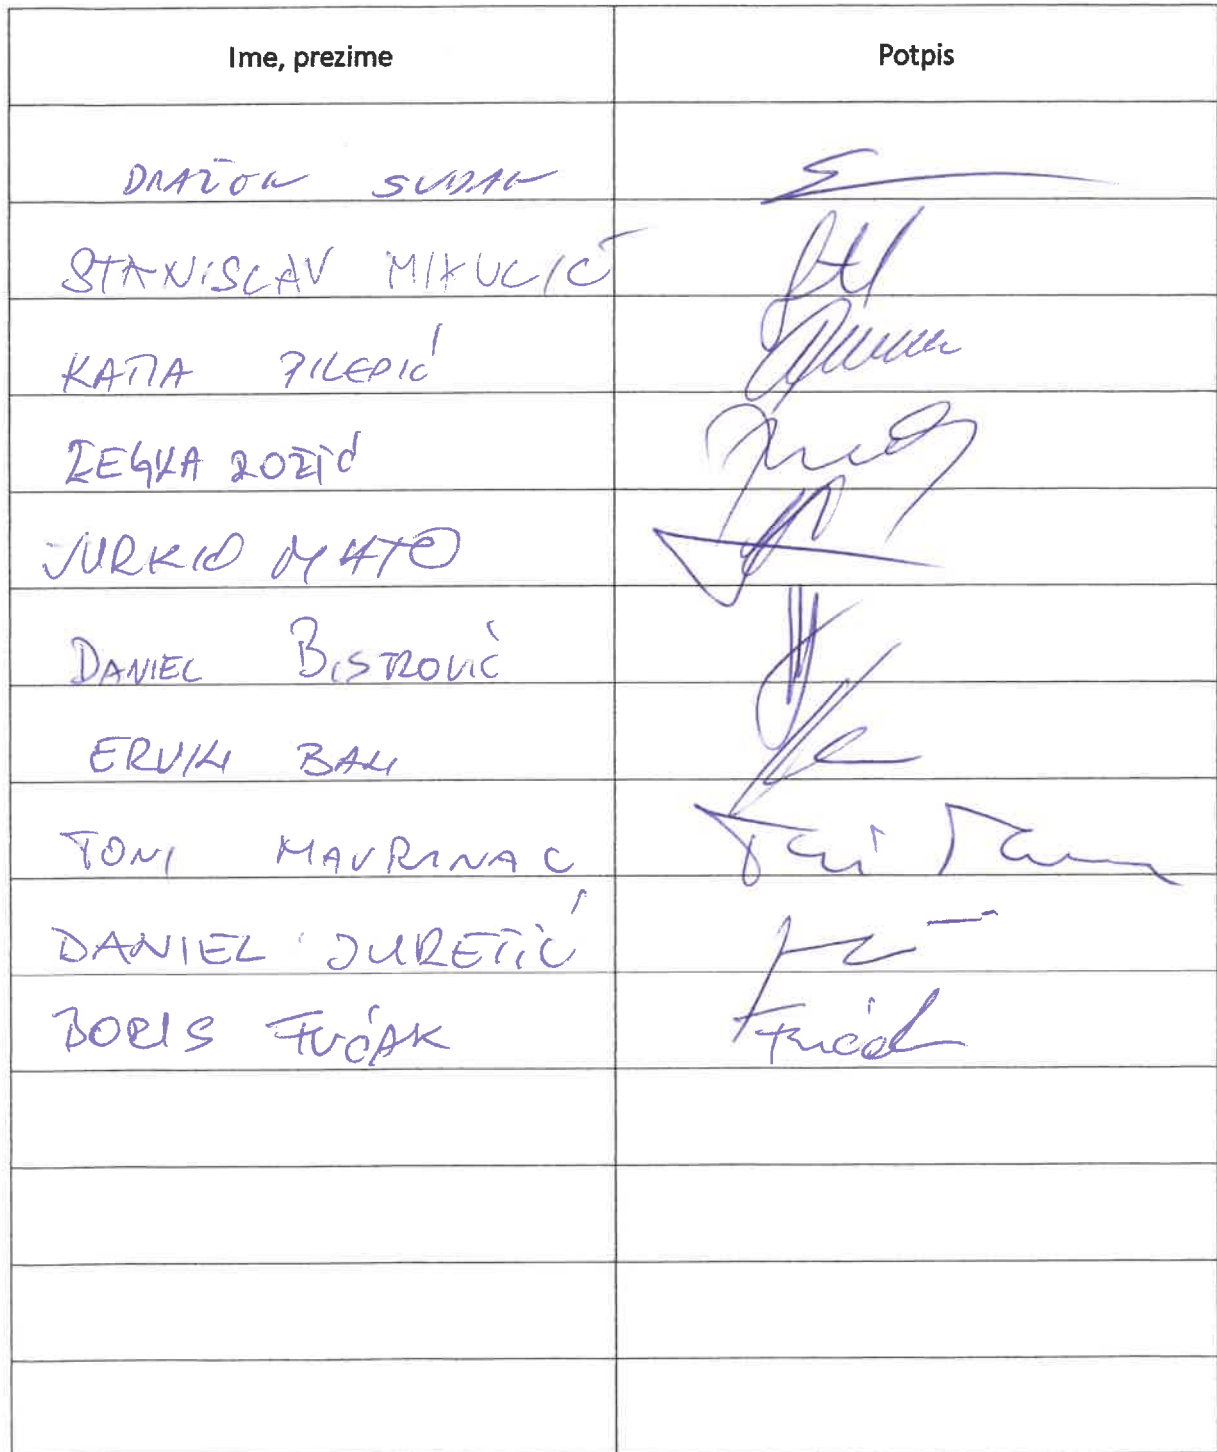 Ime, prezime Potpis
DRAŽEN SUDAN
STANISLAV MIKULIĆ
KATJA PILEPIĆ
ŽELJKA ROŽIĆ
JURKIO MATO
DANIEL BISTROVIĆ
ERVIN BAN
TONI MAVRINAC
DANIEL JURETIĆ
BORIS FUĆAK